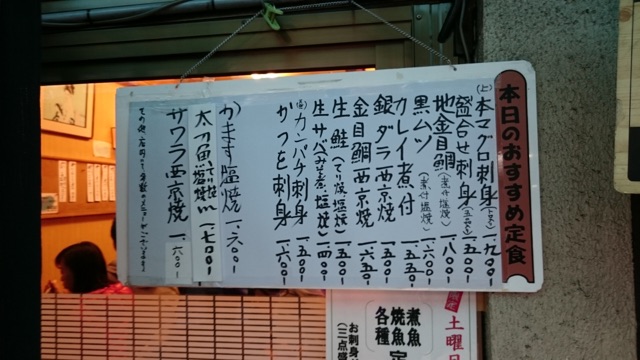 本日のおすすめ定食
(上)本マグロ刺身 一、九〇〇
盛合せ刺身 一、五〇〇
地金目鯛(煮付・塩焼) 一、八〇〇
黒ムツ(煮付・塩焼) 一、六〇〇
カレイ煮付 一、五五〇
銀ダラ西京焼 一、五〇〇
金目鯛西京焼 一、六五〇
生鮭(てり焼・塩焼) 一、五〇〇
生サバ(みそ煮・塩焼) 一、四〇〇
カンパチ刺身 一、五〇〇
かつを刺身 一、六〇〇
かます塩焼 一、六〇〇
太刀魚塩焼 一、七〇〇
サワラ西京焼 一、六〇〇
土曜
煮魚
焼魚
各種
定
お刺身
(三点盛